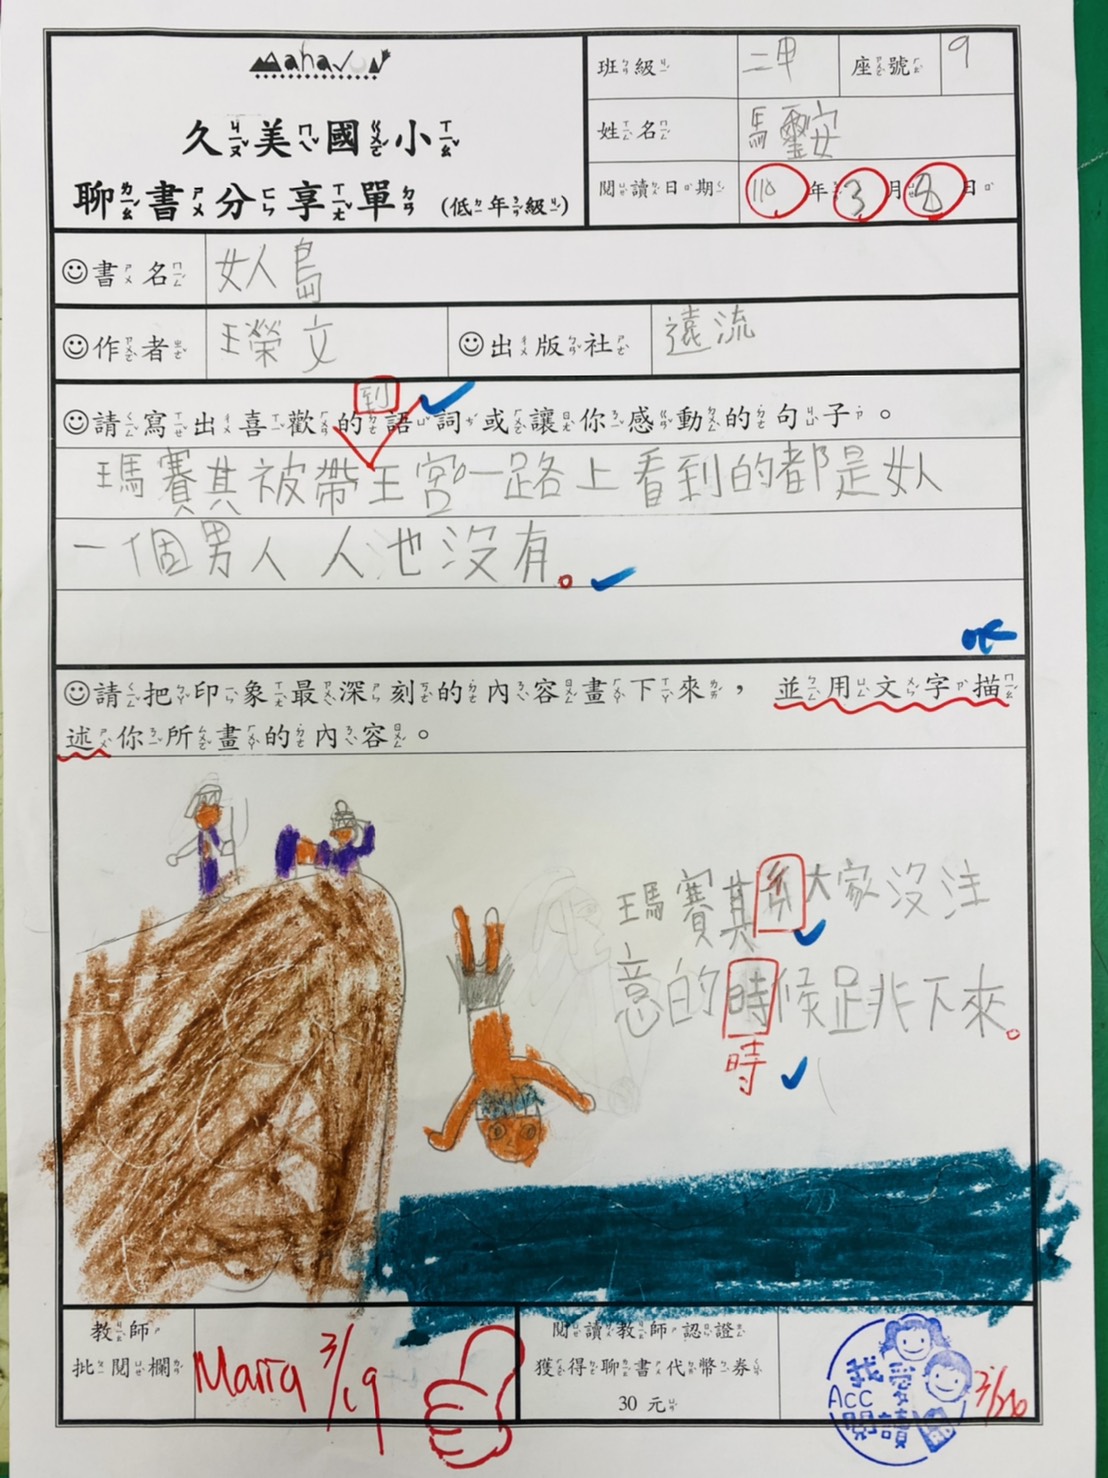 Mahavun
久美國小
聊書分享單 (低年級)
班級 二甲 座號 9
姓名 馬璽安
閱讀日期 110年3月8日
書名 女人島
作者 王榮文 出版社 遠流
請寫出喜歡的語詞或讓你感動的句子。
到
瑪賽其被帶王宮一路上看到的都是女人
一個男人人也沒有。
ok
請把印象最深刻的內容畫下來，並用文字描
述你所畫的內容。
瑪賽其匆大家沒注
意的時候跳下來。
時
教師
批閱欄
Maria 3/19
閱讀教師認證
獲得聊書代幣券
30元
我愛
Acc
閱讀